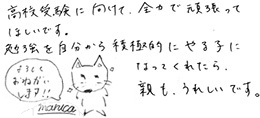 高校受験に向けて、全力で頑張って
ほしいです。
勉強を自分から積極的にやる子に
なってくれたら、
親も、うれしいです。
よろしく
おねがい
します!!
manica